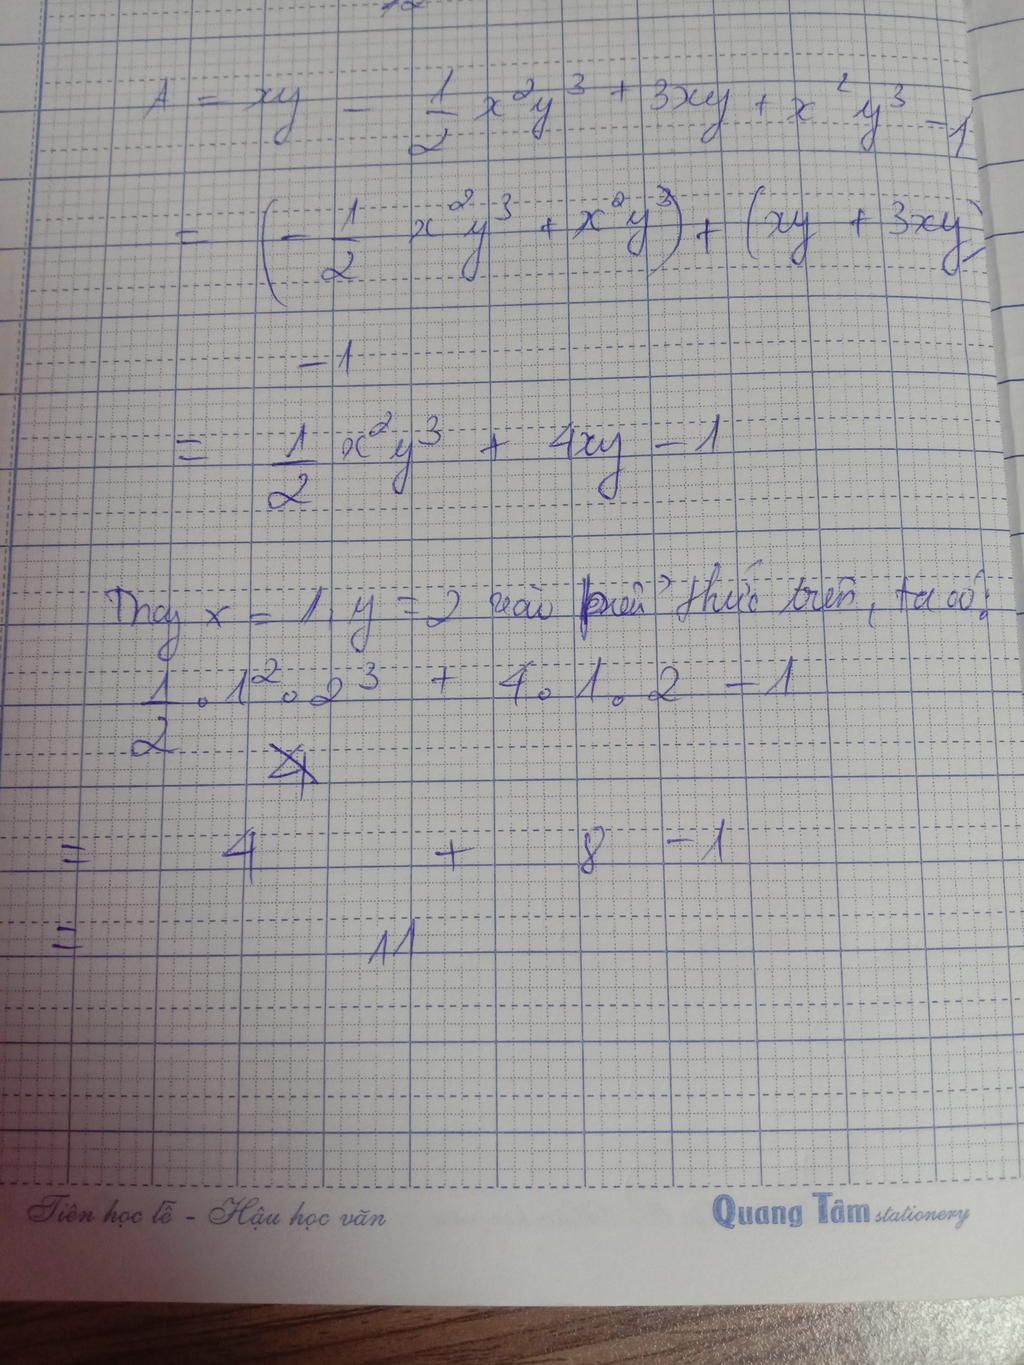 A = xy - 1/2 x²y³ + 3xy + x²y³ - 1
= (- 1/2 x²y³ + x²y³) + (xy + 3xy)
- 1
= 1/2 x²y³ + 4xy - 1
Thay x = 1, y = 2 vào thức trên, ta có:
1/2 . 1² . 2³ + 4 . 1 . 2 - 1
= 4 + 8 - 1
= 11
Tiên học lễ - Hậu học văn
Quang Tâm stationery